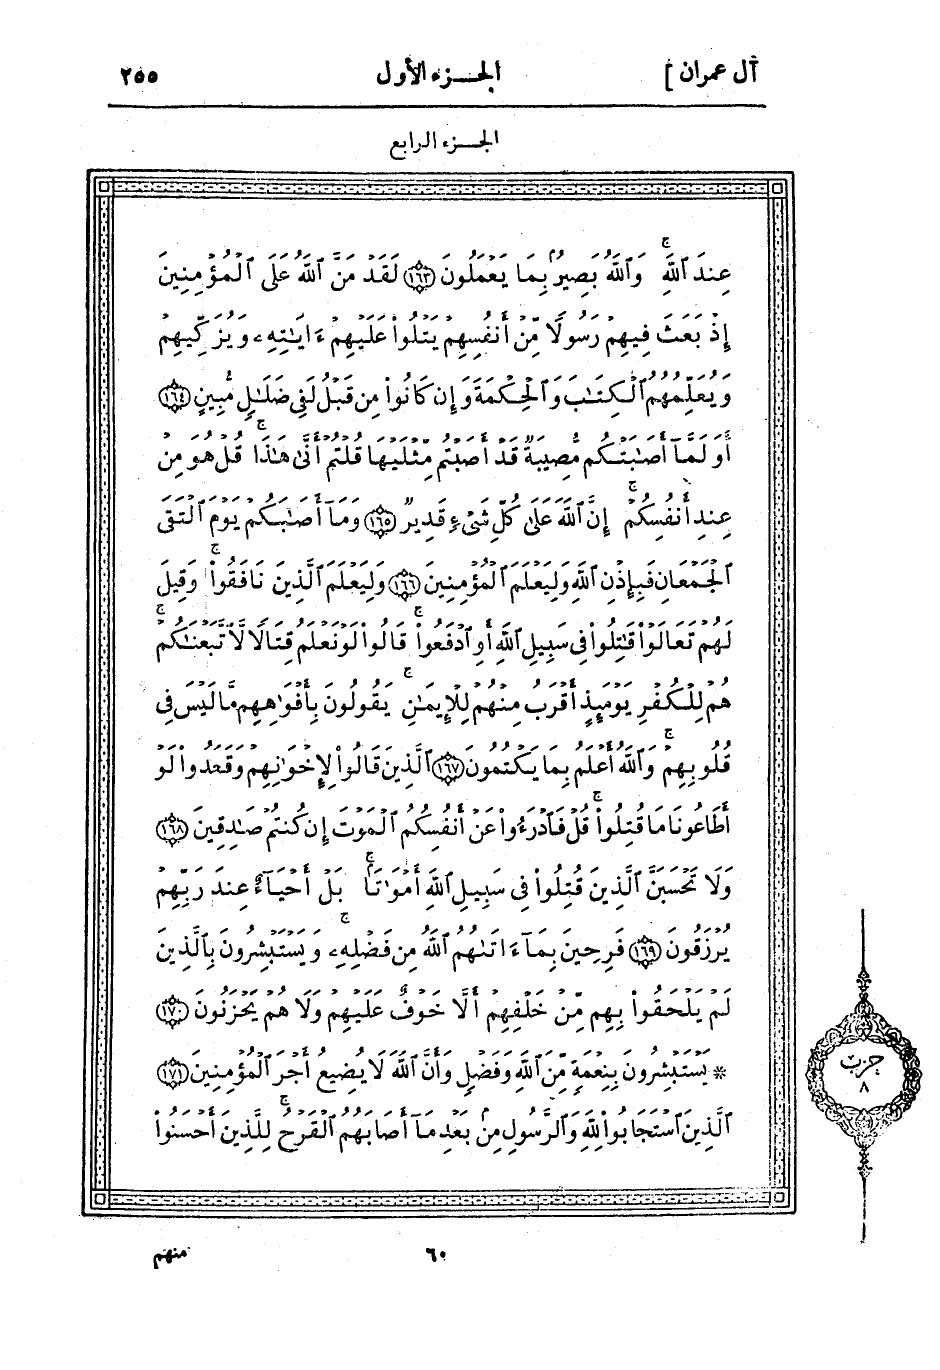 آل عمران ] الجزء الأول ٢٥٥
الجزء الرابع
عِندَ ٱللَّهِۚ وَٱللَّهُ بَصِيرُۢ بِمَا يَعْمَلُونَ ١٦٣ لَقَدْ مَنَّ ٱللَّهُ عَلَى ٱلْمُؤْمِنِينَ
إِذْ بَعَثَ فِيهِمْ رَسُولًا مِّنْ أَنفُسِهِمْ يَتْلُوا۟ عَلَيْهِمْ ءَايَـٰتِهِۦ وَيُزَكِّيهِمْ
وَيُعَلِّمُهُمُ ٱلْكِتَـٰبَ وَٱلْحِكْمَةَ وَإِن كَانُوا۟ مِن قَبْلُ لَفِى ضَلَـٰلٍ مُّبِينٍ ١٦٤
أَوَلَمَّآ أَصَـٰبَتْكُم مُّصِيبَةٌ قَدْ أَصَبْتُم مِّثْلَيْهَا قُلْتُمْ أَنَّىٰ هَـٰذَاۖ قُلْ هُوَ مِنْ
عِندِ أَنفُسِكُمْۚ إِنَّ ٱللَّهَ عَلَىٰ كُلِّ شَىْءٍ قَدِيرٌ ١٦٥ وَمَآ أَصَـٰبَكُمْ يَوْمَ ٱلْتَقَى
ٱلْجَمْعَانِ فَبِإِذْنِ ٱللَّهِ وَلِيَعْلَمَ ٱلْمُؤْمِنِينَ ١٦٦ وَلِيَعْلَمَ ٱلَّذِينَ نَافَقُوا۟ۚ وَقِيلَ
لَهُمْ تَعَالَوْا۟ قَـٰتِلُوا۟ فِى سَبِيلِ ٱللَّهِ أَوِ ٱدْفَعُوا۟ۚ قَالُوا۟ لَوْ نَعْلَمُ قِتَالًا لَّٱتَّبَعْنَـٰكُمْۚ
هُمْ لِلْكُفْرِ يَوْمَئِذٍ أَقْرَبُ مِنْهُمْ لِلْإِيمَـٰنِۚ يَقُولُونَ بِأَفْوَٰهِهِم مَّا لَيْسَ فِى
قُلُوبِهِمْۚ وَٱللَّهُ أَعْلَمُ بِمَا يَكْتُمُونَ ١٦٧ ٱلَّذِينَ قَالُوا۟ لِإِخْوَٰنِهِمْ وَقَعَدُوا۟ لَوْ
أَطَاعُونَا مَا قُتِلُوا۟ۚ قُلْ فَٱدْرَءُوا۟ عَنْ أَنفُسِكُمُ ٱلْمَوْتَ إِن كُنتُمْ صَـٰدِقِينَ ١٦٨
وَلَا تَحْسَبَنَّ ٱلَّذِينَ قُتِلُوا۟ فِى سَبِيلِ ٱللَّهِ أَمْوَٰتًۢاۚ بَلْ أَحْيَآءٌ عِندَ رَبِّهِمْ
يُرْزَقُونَ ١٦٩ فَرِحِينَ بِمَآ ءَاتَىٰهُمُ ٱللَّهُ مِن فَضْلِهِۦۚ وَيَسْتَبْشِرُونَ بِٱلَّذِينَ
لَمْ يَلْحَقُوا۟ بِهِم مِّنْ خَلْفِهِمْ أَلَّا خَوْفٌ عَلَيْهِمْ وَلَا هُمْ يَحْزَنُونَ ١٧٠
* يَسْتَبْشِرُونَ بِنِعْمَةٍ مِّنَ ٱللَّهِ وَفَضْلٍ وَأَنَّ ٱللَّهَ لَا يُضِيعُ أَجْرَ ٱلْمُؤْمِنِينَ ١٧١
ٱلَّذِينَ ٱسْتَجَابُوا۟ لِلَّهِ وَٱلرَّسُولِ مِنۢ بَعْدِ مَآ أَصَابَهُمُ ٱلْقَرْحُۚ لِلَّذِينَ أَحْسَنُوا۟
حزب
٨
٦٠ منهم